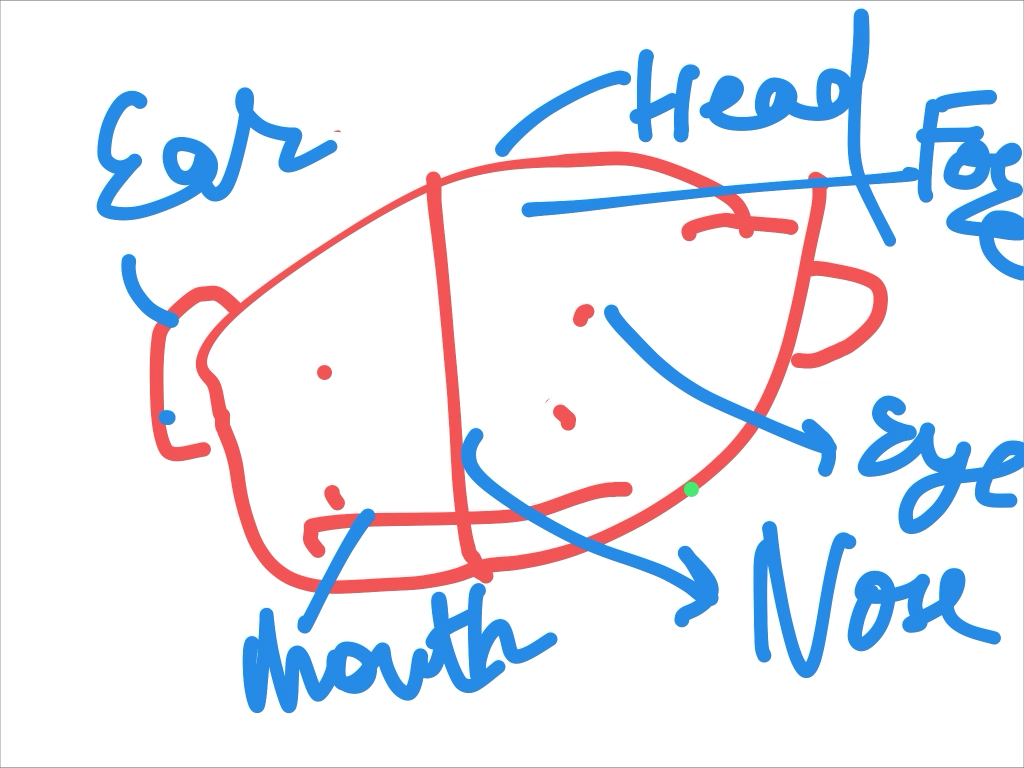 Ear
Head
Eye
Nose
Mouth